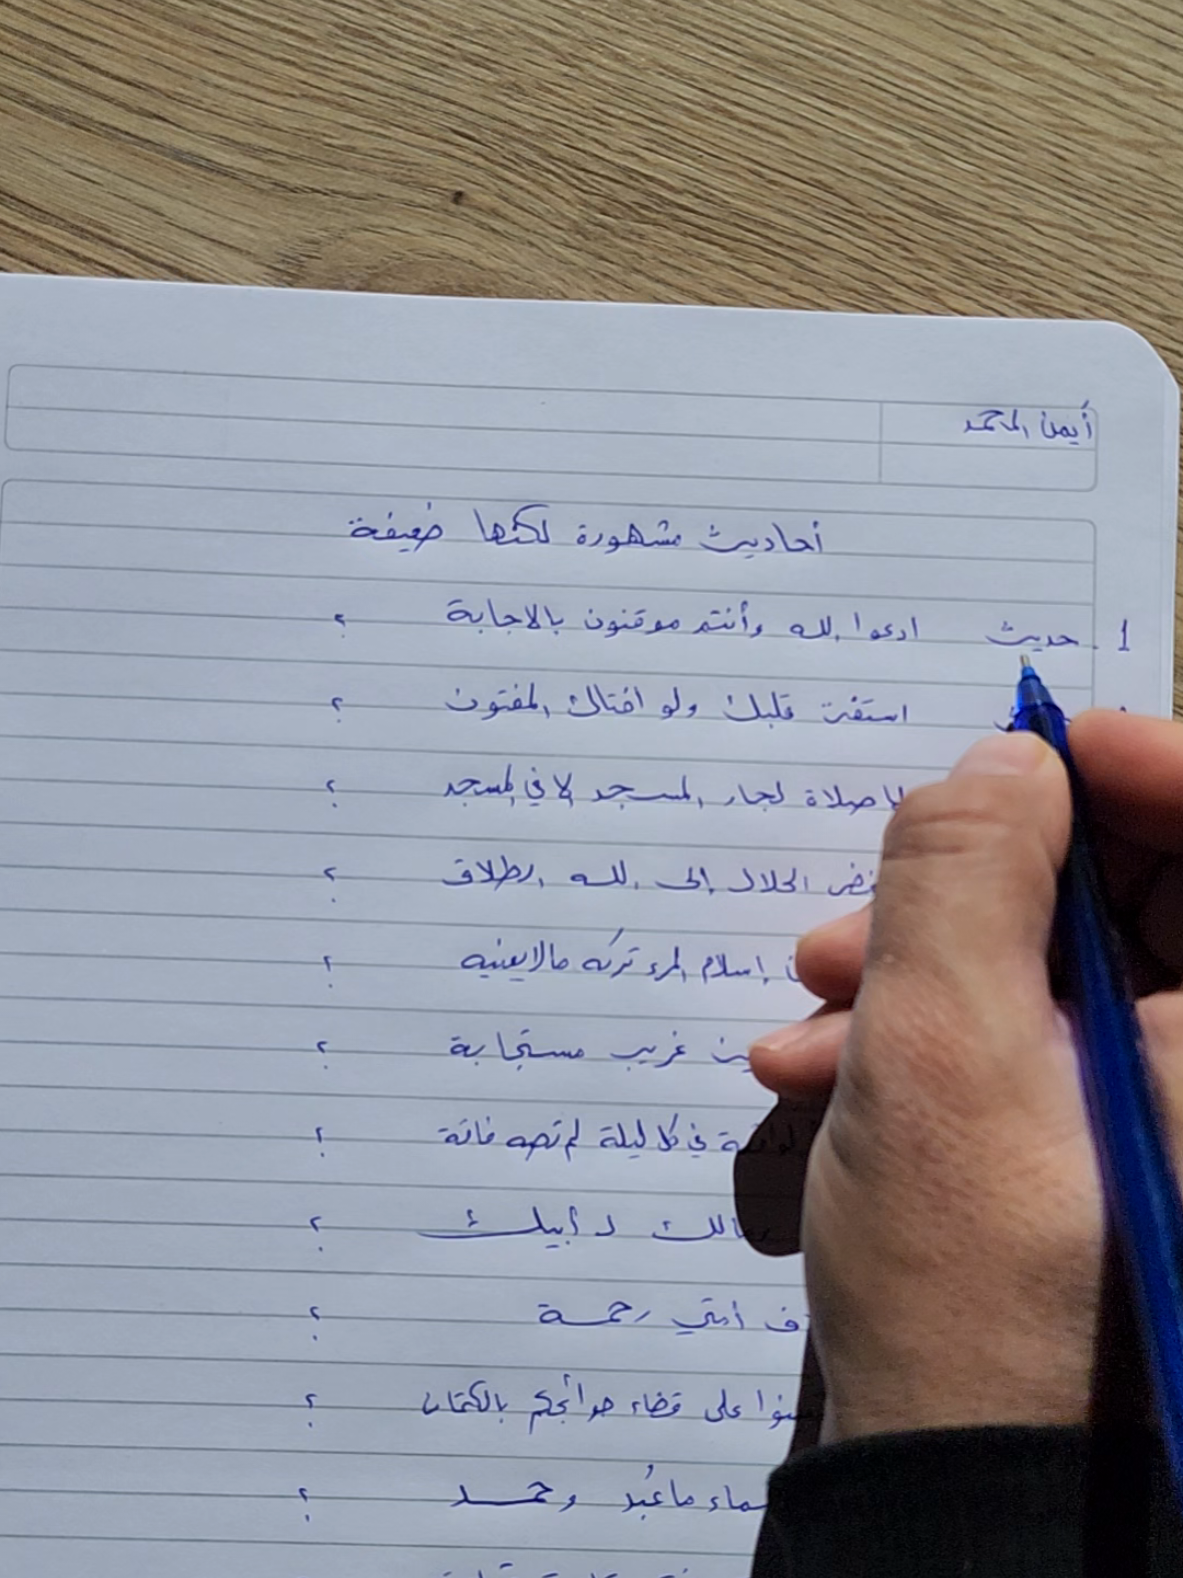 أيمن المحمد
أحاديث مشهورة لكنها ضعيفة
1 حديث ادعوا الله وأنتم موقنون بالاجابة ؟
استفت قلبك ولو افتاك المفتون ؟
لا صلاة لجار المسجد إلا في المسجد ؟
الحلال إلى الله الطلاق ؟
إسلام المرء تركه مالا يعنيه ؟
غريب مستجابة ؟
في كل ليلة لم تصبه فاقة ؟
ومالك لأبيك ؟
أمتي رحمة ؟
على قضاء حوائجكم بالكتمان ؟
ما عُبد وحمد ؟